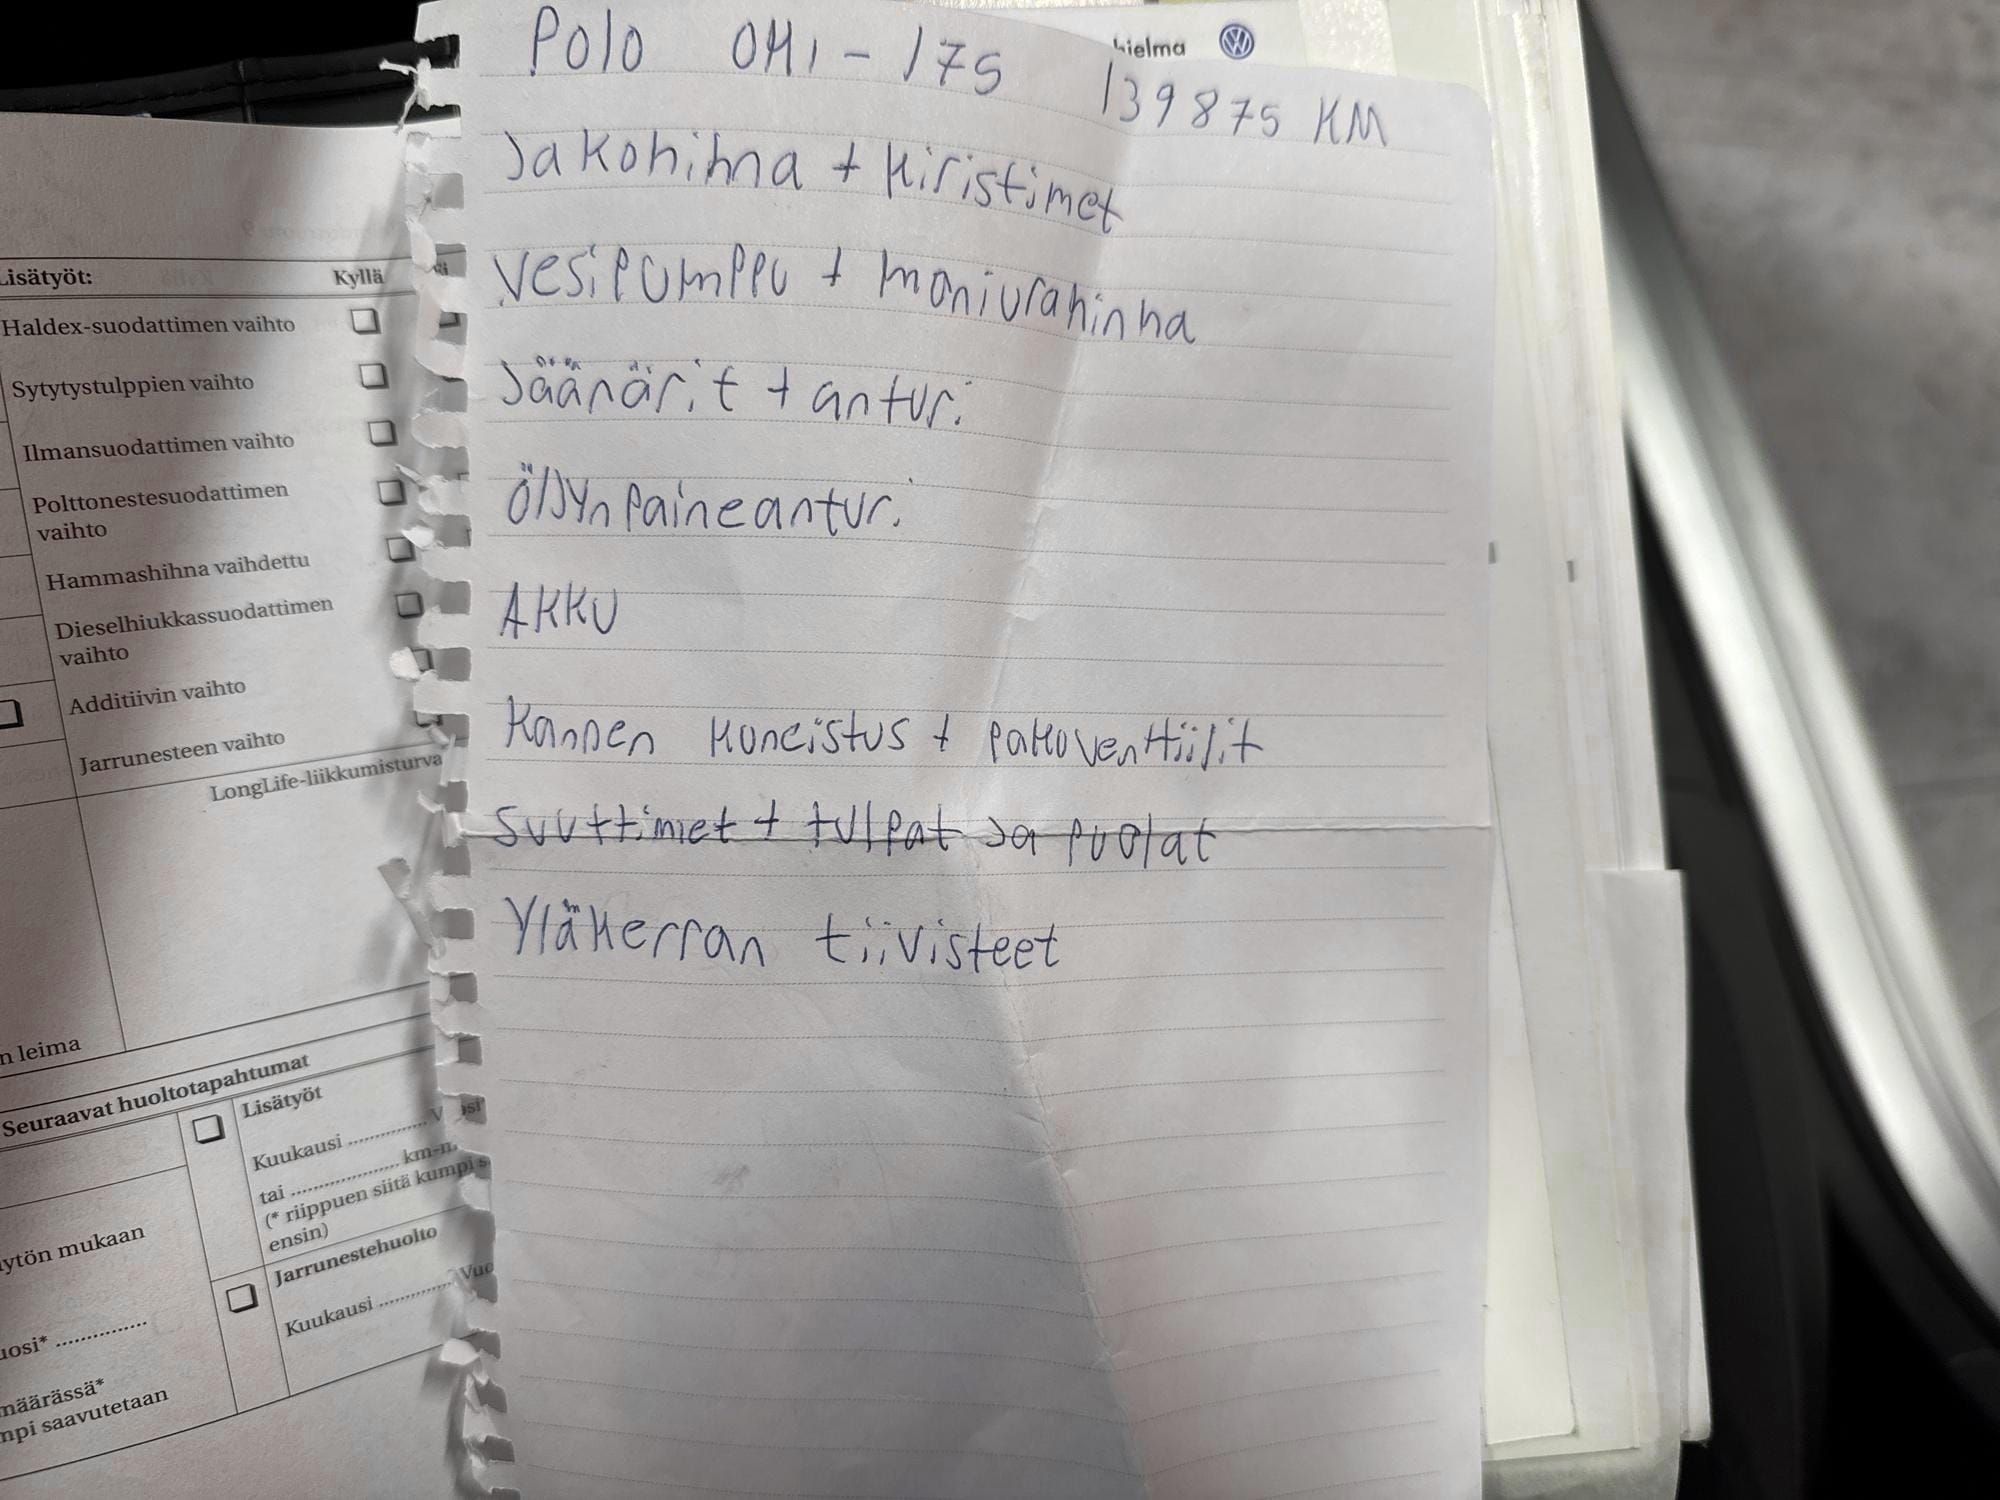 Polo OHI - 175
hielma
139875 KM
Jakohihna + kiristimet
Vesipumppu + moniurahihna
Jäähäri.t + anturi
Öljynpaineanturi
AKKU
Kannen koneistus + pakoventtiilit
Suuttimet + tulpat ja puolat
Yläkerran tiivisteet
Lisätyöt: Kyllä
Haldex-suodattimen vaihto
Sytytystulppien vaihto
Ilmansuodattimen vaihto
Polttonestesuodattimen
vaihto
Hammashihna vaihdettu
Dieselhiukkassuodattimen
vaihto
Additiivin vaihto
Jarrunesteen vaihto
LongLife-liikkumisturva
n leima
Seuraavat huoltotapahtumat
Lisätyöt
Kuukausi .............. V
tai .................... km-n.
(* riippuen siitä kumpi s
ensin)
Jarrunestehuolto
Kuukausi .............. Vuo
ytön mukaan
uosi* ..............
määrässä*
mpi saavutetaan